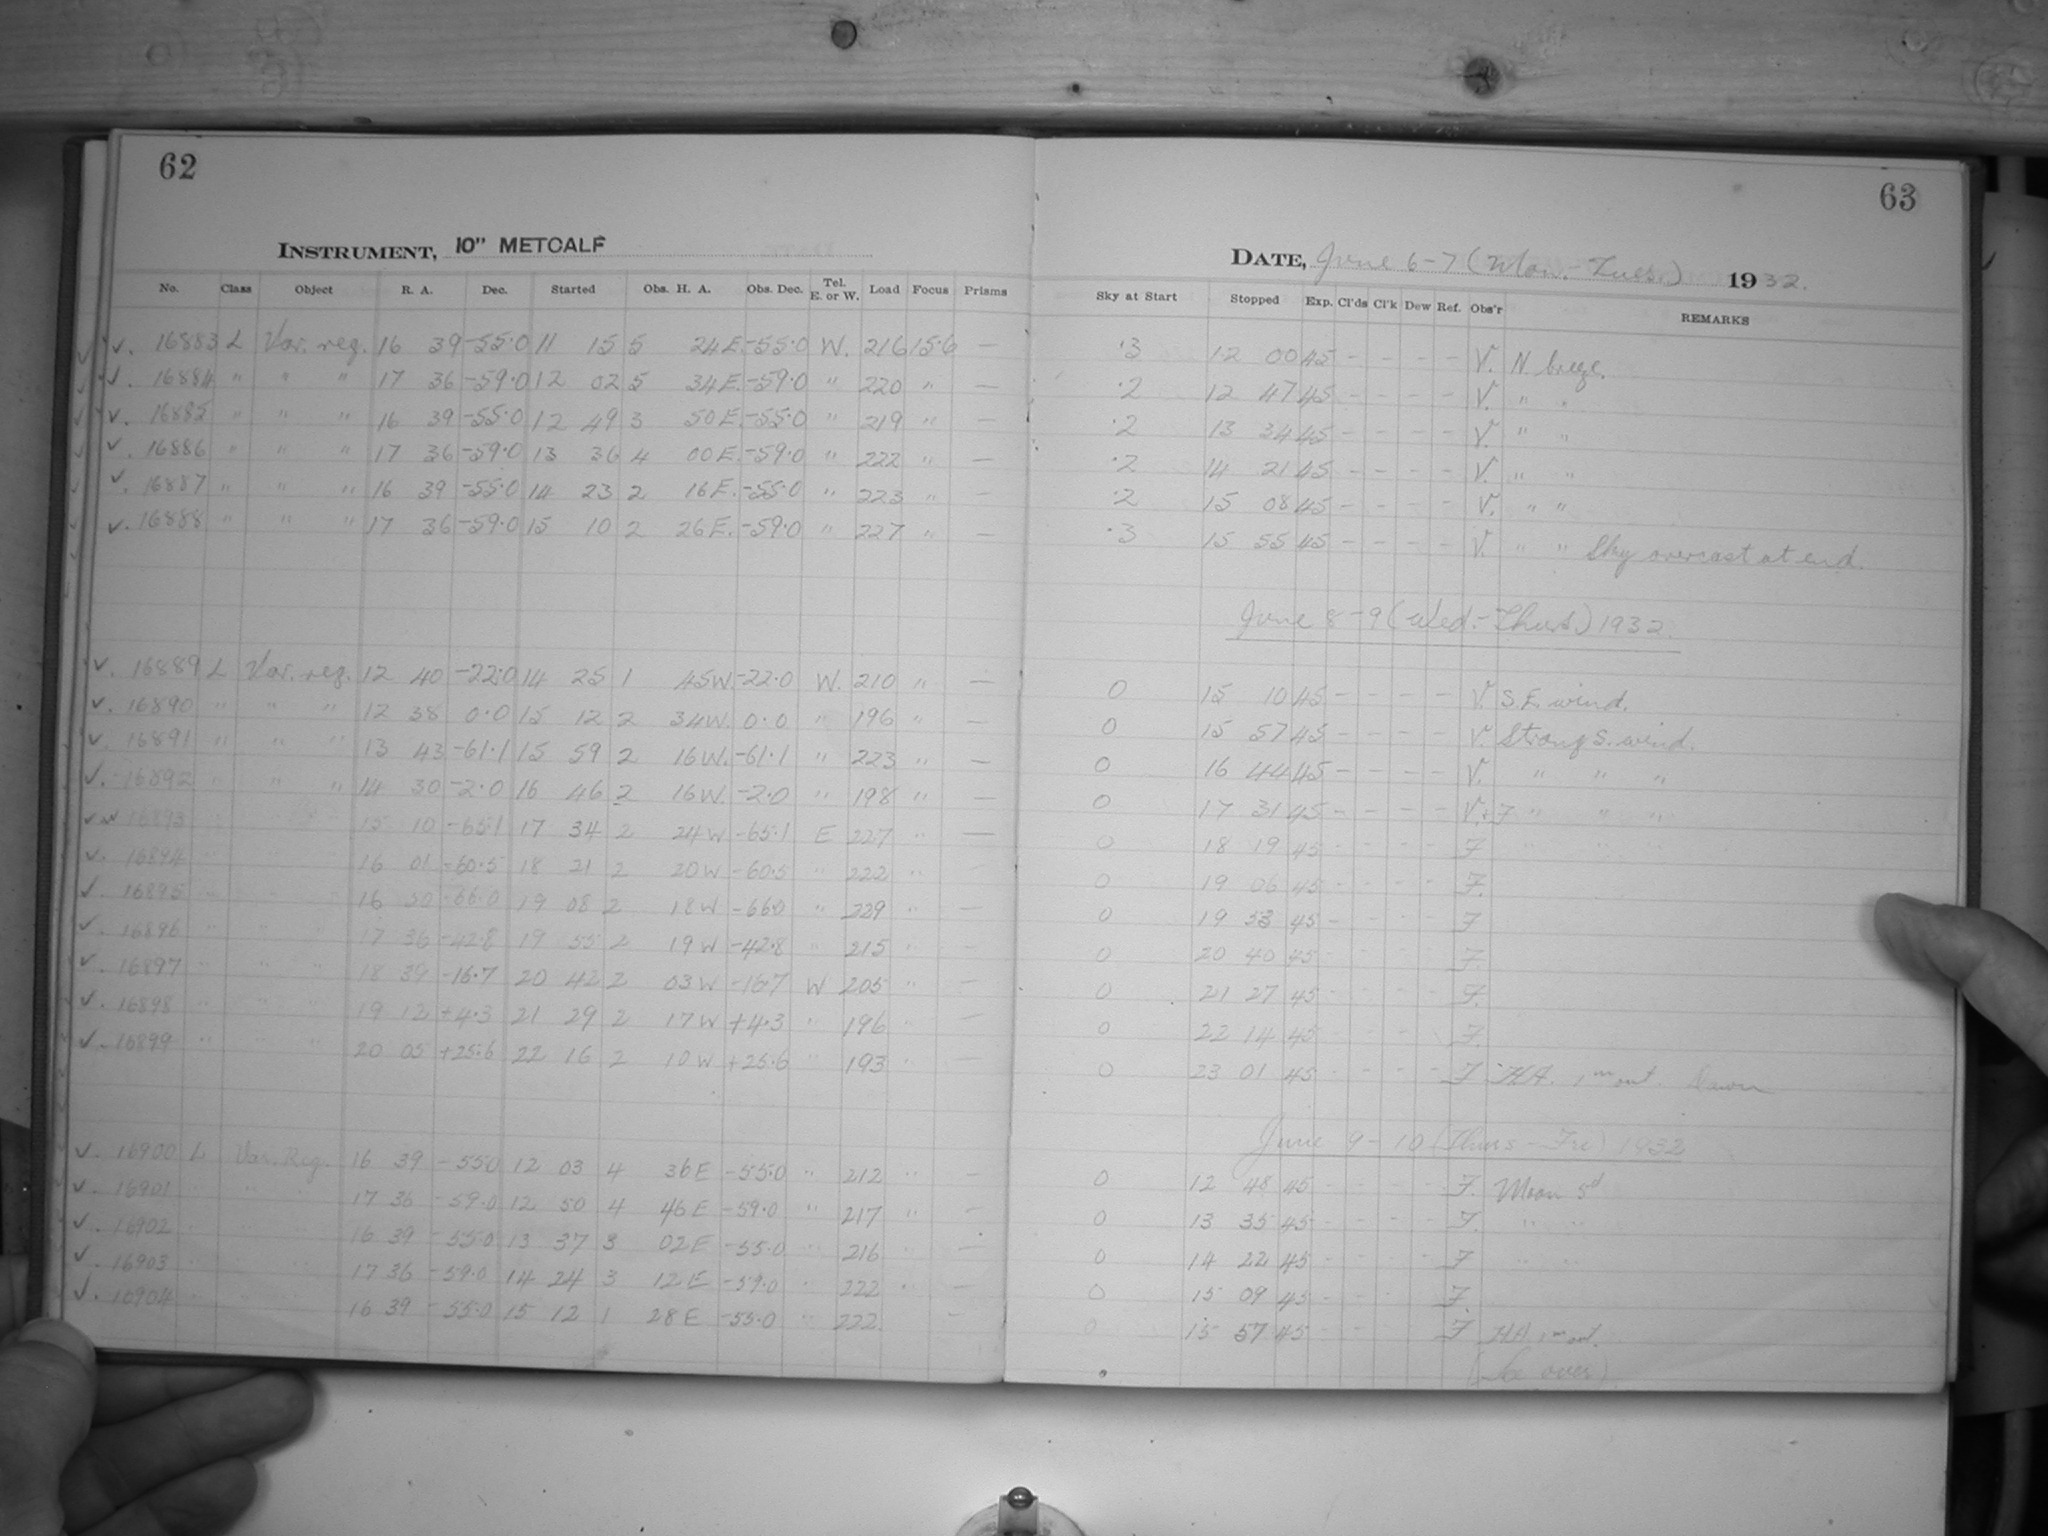 62
63
INSTRUMENT, 10" METCALF
DATE, June 6-7 (Mon.-Tues.) 1932.
No. Class Object R. A. Dec. Started Obs. H. A. Obs. Dec. Tel. E. or W. Load Focus Prisms Sky at Start Stopped Exp. Cl'ds Cl'k Dew Ref. Obs'r REMARKS
√. 16883 L Var. reg. 16 39 -55.0 11 15 5 24E. -55.0 W. 216 15.6 — .3 12 00 45 - - - - V. N. breeze.
√. 16884 " " " 17 36 -59.0 12 02 5 34E. -59.0 " 220 " — .2 12 47 45 - - - - V. " "
√. 16885 " " " 16 39 -55.0 12 49 3 50E. -55.0 " 219 " — .2 13 34 45 - - - - V. " "
√. 16886 " " " 17 36 -59.0 13 36 4 00E. -59.0 " 222 " — .2 14 21 45 - - - - V. " "
√. 16887 " " " 16 39 -55.0 14 23 2 16E. -55.0 " 223 " — .2 15 08 45 - - - - V. " "
√. 16888 " " " 17 36 -59.0 15 10 2 26E. -59.0 " 227 " — .3 15 55 45 - - - - V. " " Sky overcast at end.
June 8-9 (Wed.-Thurs.) 1932.
√. 16889 L Var. reg. 12 40 -22.0 14 25 1 45W. -22.0 W. 210 " — 0 15 10 45 - - - - V. S.E. wind.
√. 16890 " " " 12 38 0.0 15 12 2 34W. 0.0 " 196 " — 0 15 57 45 - - - - V. Strong S. wind.
√. 16891 " " " 13 43 -61.1 15 59 2 16W. -61.1 " 223 " — 0 16 44 45 - - - - V. " " "
√. 16892 " " " 14 30 -2.0 16 46 2 16W. -2.0 " 198 " — 0 17 31 45 - - - - V.+F " " "
√ 16893 " " " 15 10 -65.1 17 34 2 24W -65.1 E 227 " — 0 18 19 45 - - - - F " " "
√. 16894 " " " 16 01 -60.5 18 21 2 20W -60.5 " 222 " — 0 19 06 45 - - - - F.
√. 16895 " " " 16 50 -66.0 19 08 2 18W -66.0 " 229 " — 0 19 53 45 - - - - F
√. 16896 " " " 17 36 -42.8 19 55 2 19W -42.8 " 215 " — 0 20 40 45 - - - - F.
√. 16897 " " " 18 39 -16.7 20 42 2 03W -16.7 W 205 " — 0 21 27 45 - - - - F.
√. 16898 " " " 19 12 +4.3 21 29 2 17W +4.3 " 196 " — 0 22 14 45 - - - - F.
√. 16899 " " " 20 05 +25.6 22 16 2 10W +25.6 " 193 " 0 23 01 45 - - - - F HA. 1m out. Dawn
June 9-10 (Thurs-Fri) 1932
√. 16900 L Var. Reg. 16 39 -55.0 12 03 4 36E -55.0 " 212 " — 0 12 48 45 - - - - F. Moon 5d
√. 16901 " " " 17 36 -59.0 12 50 4 46E -59.0 " 217 " — 0 13 35 45 - - - - F. " "
√. 16902 " " " 16 39 -55.0 13 37 3 02E -55.0 " 216 " — 0 14 22 45 - - - - F " "
√. 16903 " " " 17 36 -59.0 14 24 3 12E -59.0 " 222 " — 0 15 09 45 - - - - F.
√. 16904 " " " 16 39 -55.0 15 12 1 28E -55.0 " 222 — 0 15 57 45 - - - - F HA 1m out.